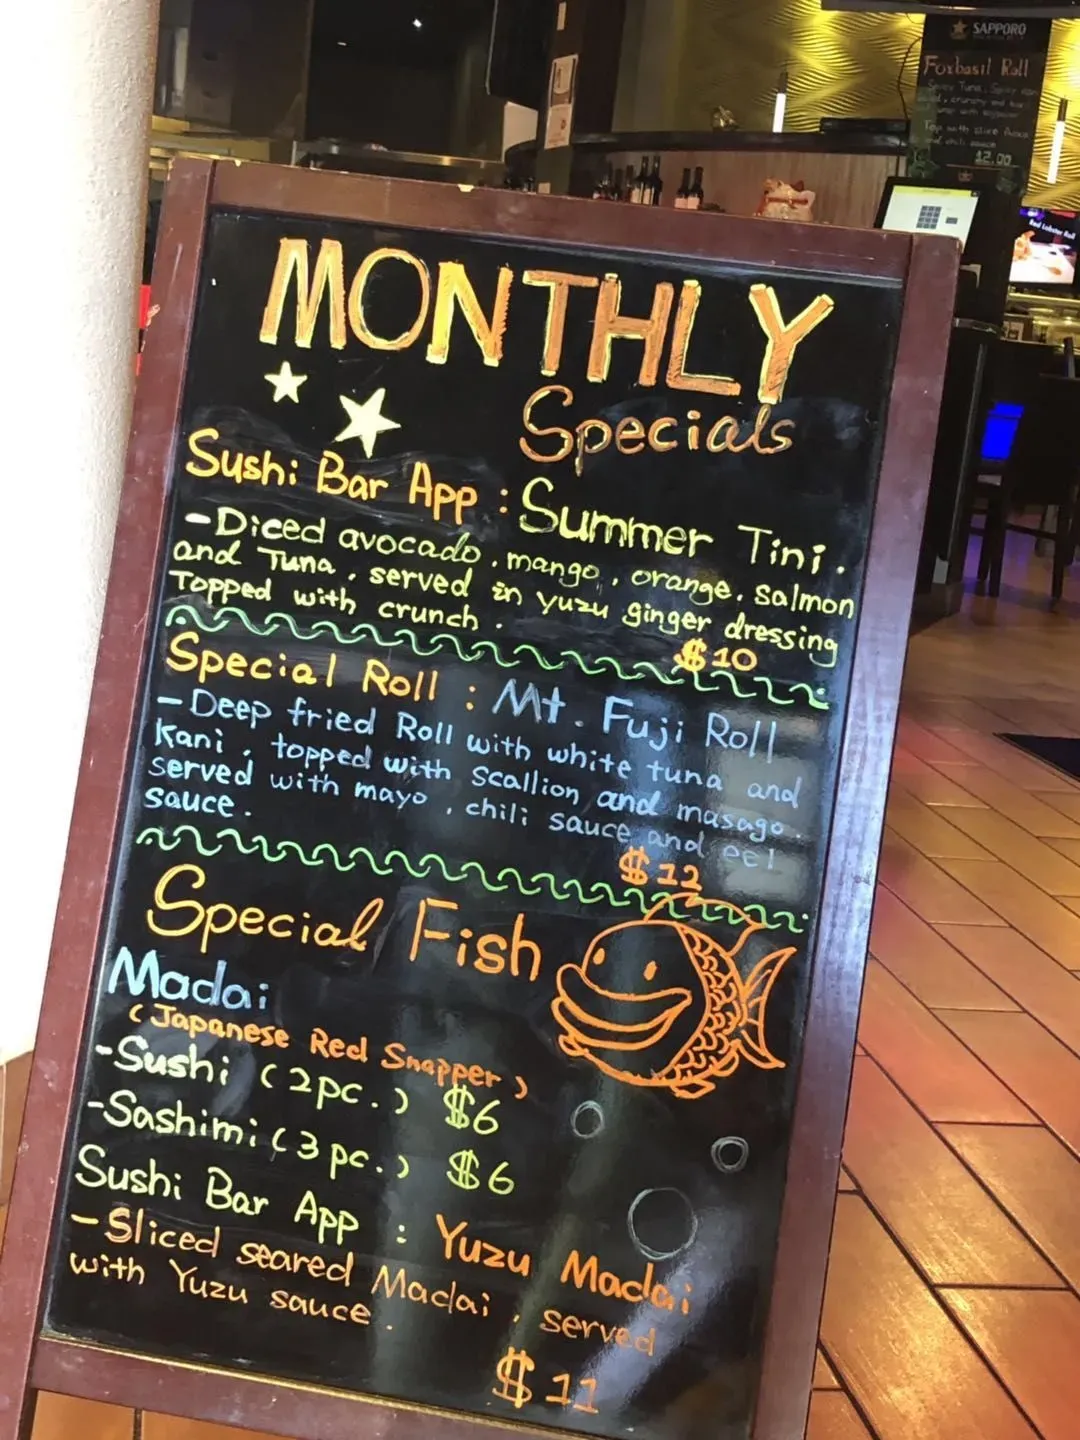 SAPPORO
Foxbasil Roll
12.00
Red Lobster Roll
MONTHLY
Specials
Sushi Bar App : Summer Tini.
-Diced avocado, mango, orange, salmon
and Tuna, served in yuzu ginger dressing
Topped with crunch.
$10
Special Roll : Mt. Fuji Roll
-Deep fried Roll with white tuna and
Kani, topped with scallion and masago.
served with mayo, chili sauce and eel
sauce.
$12
Special Fish
Madai
(Japanese Red Snapper)
-Sushi (2pc.) $6
-Sashimi (3pc.) $6
Sushi Bar App : Yuzu Madai
-Sliced seared Madai, served
with Yuzu sauce.
$11